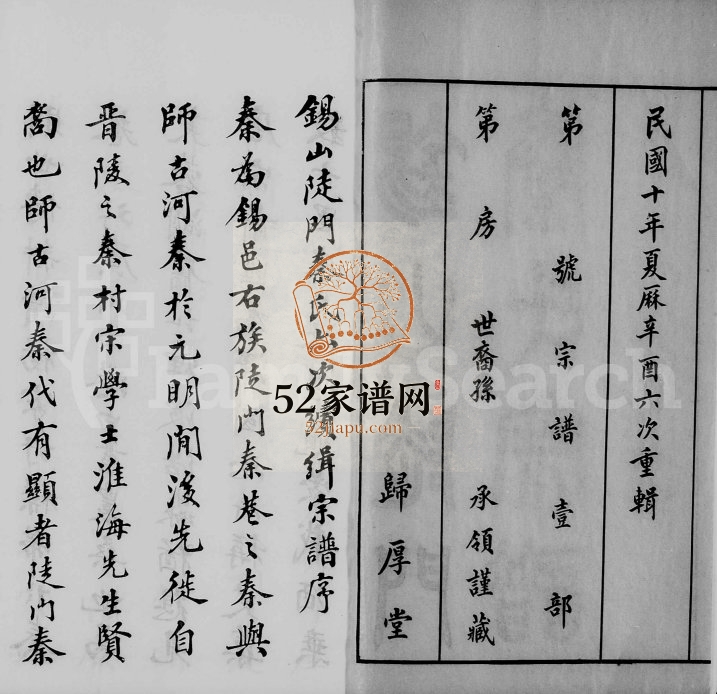 民國十年夏厤辛酉六次重輯
第 號宗譜壹部
第 房 世裔孫 承領謹藏
歸厚堂
錫山陡門秦氏六次續輯宗譜序
秦為錫邑右族陡門秦巷之秦與
師古河秦於元明間後先徙自
晋陵之秦村宗學士淮海先生賢
裔也師古河秦代有顯者陡門秦
52家谱网
52jiapu.com
FamilySearch